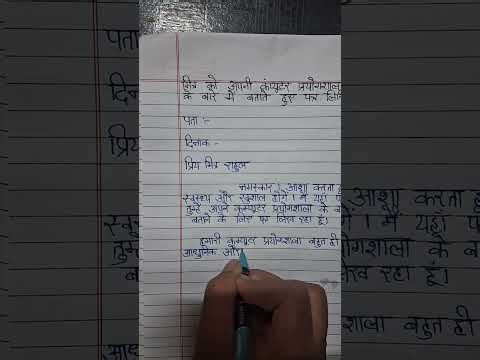 मित्र को अपनी कंप्यूटर प्रयोगशाला
के बारे में बताते हुए पत्र
पता :-
दिनांक -
प्रिय मित्र राहुल
नमस्कार, आशा करता
स्वस्थ और खुशहाल होंगे। मैं यहाँ
तुम्हें अपने कम्प्यूटर प्रयोगशाला के
बताने के लिए पत्र लिख रहा हूँ।
हमारी कम्प्यूटर प्रयोगशाला बहुत ही
आधुनिक और